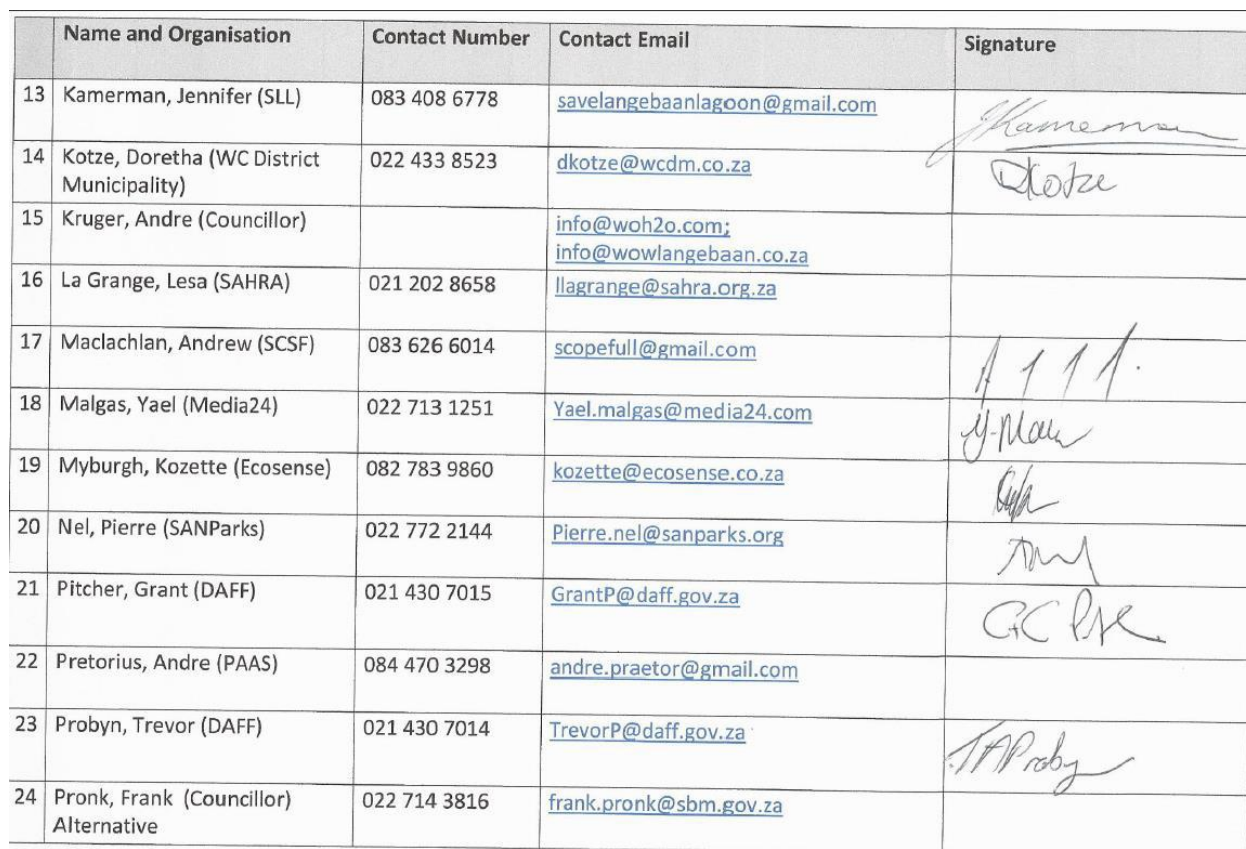 Name and Organisation Contact Number Contact Email Signature
13 Kamerman, Jennifer (SLL) 083 408 6778 savelangebaanlagoon@gmail.com JKamerman
14 Kotze, Doretha (WC District 022 433 8523 dkotze@wcdm.co.za DKotze
Municipality)
15 Kruger, Andre (Councillor) info@woh2o.com;
info@wowlangebaan.co.za
16 La Grange, Lesa (SAHRA) 021 202 8658 llagrange@sahra.org.za
17 Maclachlan, Andrew (SCSF) 083 626 6014 scopefull@gmail.com
18 Malgas, Yael (Media24) 022 713 1251 Yael.malgas@media24.com
19 Myburgh, Kozette (Ecosense) 082 783 9860 kozette@ecosense.co.za
20 Nel, Pierre (SANParks) 022 772 2144 Pierre.nel@sanparks.org
21 Pitcher, Grant (DAFF) 021 430 7015 GrantP@daff.gov.za
22 Pretorius, Andre (PAAS) 084 470 3298 andre.praetor@gmail.com
23 Probyn, Trevor (DAFF) 021 430 7014 TrevorP@daff.gov.za TAProby
24 Pronk, Frank (Councillor) 022 714 3816 frank.pronk@sbm.gov.za
Alternative